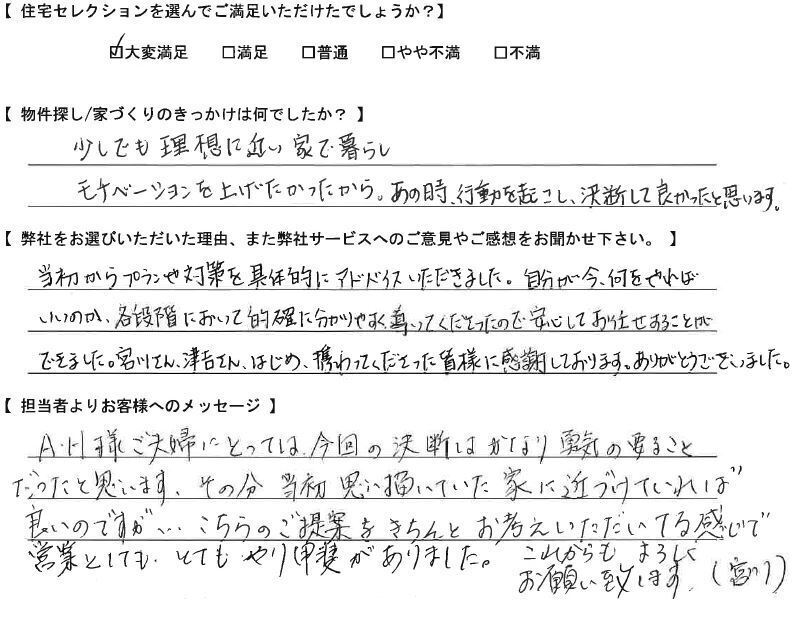 【 住宅セレクションを選んでご満足いただけたでしょうか？】
☑大変満足 □満足 □普通 □やや不満 □不満
【 物件探し/家づくりのきっかけは何でしたか？ 】
少しでも理想に近い家で暮らし
モチベーションを上げたかったから。あの時、行動を起こし、決断して良かったと思います。
【 弊社をお選びいただいた理由、また弊社サービスへのご意見やご感想をお聞かせ下さい。 】
当初からプランや対策を具体的にアドドバイスいただきました。自分が今、何をやれば
いいのか、各段階において的確に分かりやすく導いてくださったので安心してお任せすることが
できました。宮川さん、津吉さん、はじめ、携わってくださった皆様に感謝しております。ありがとうございました。
【 担当者よりお客様へのメッセージ 】
A・H様ご夫婦にとっては、今回の決断はかなり勇気の要ること
だったと思います。その分 当初思い描いていた家に近づけていれば
良いのですが… こちらのご提案をきちんとお考えいただいてる感じで
営業としても、とてもやり甲斐がありました。これからもよろしく
お願い致します。（宮川）